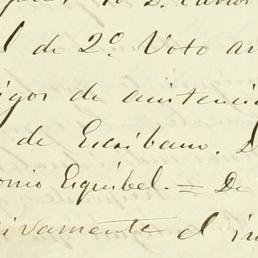 D. Carlos
l de 2º Voto an
igos de asistencia
de Escribano. D
onio Esquibel. = De
ivamente el in